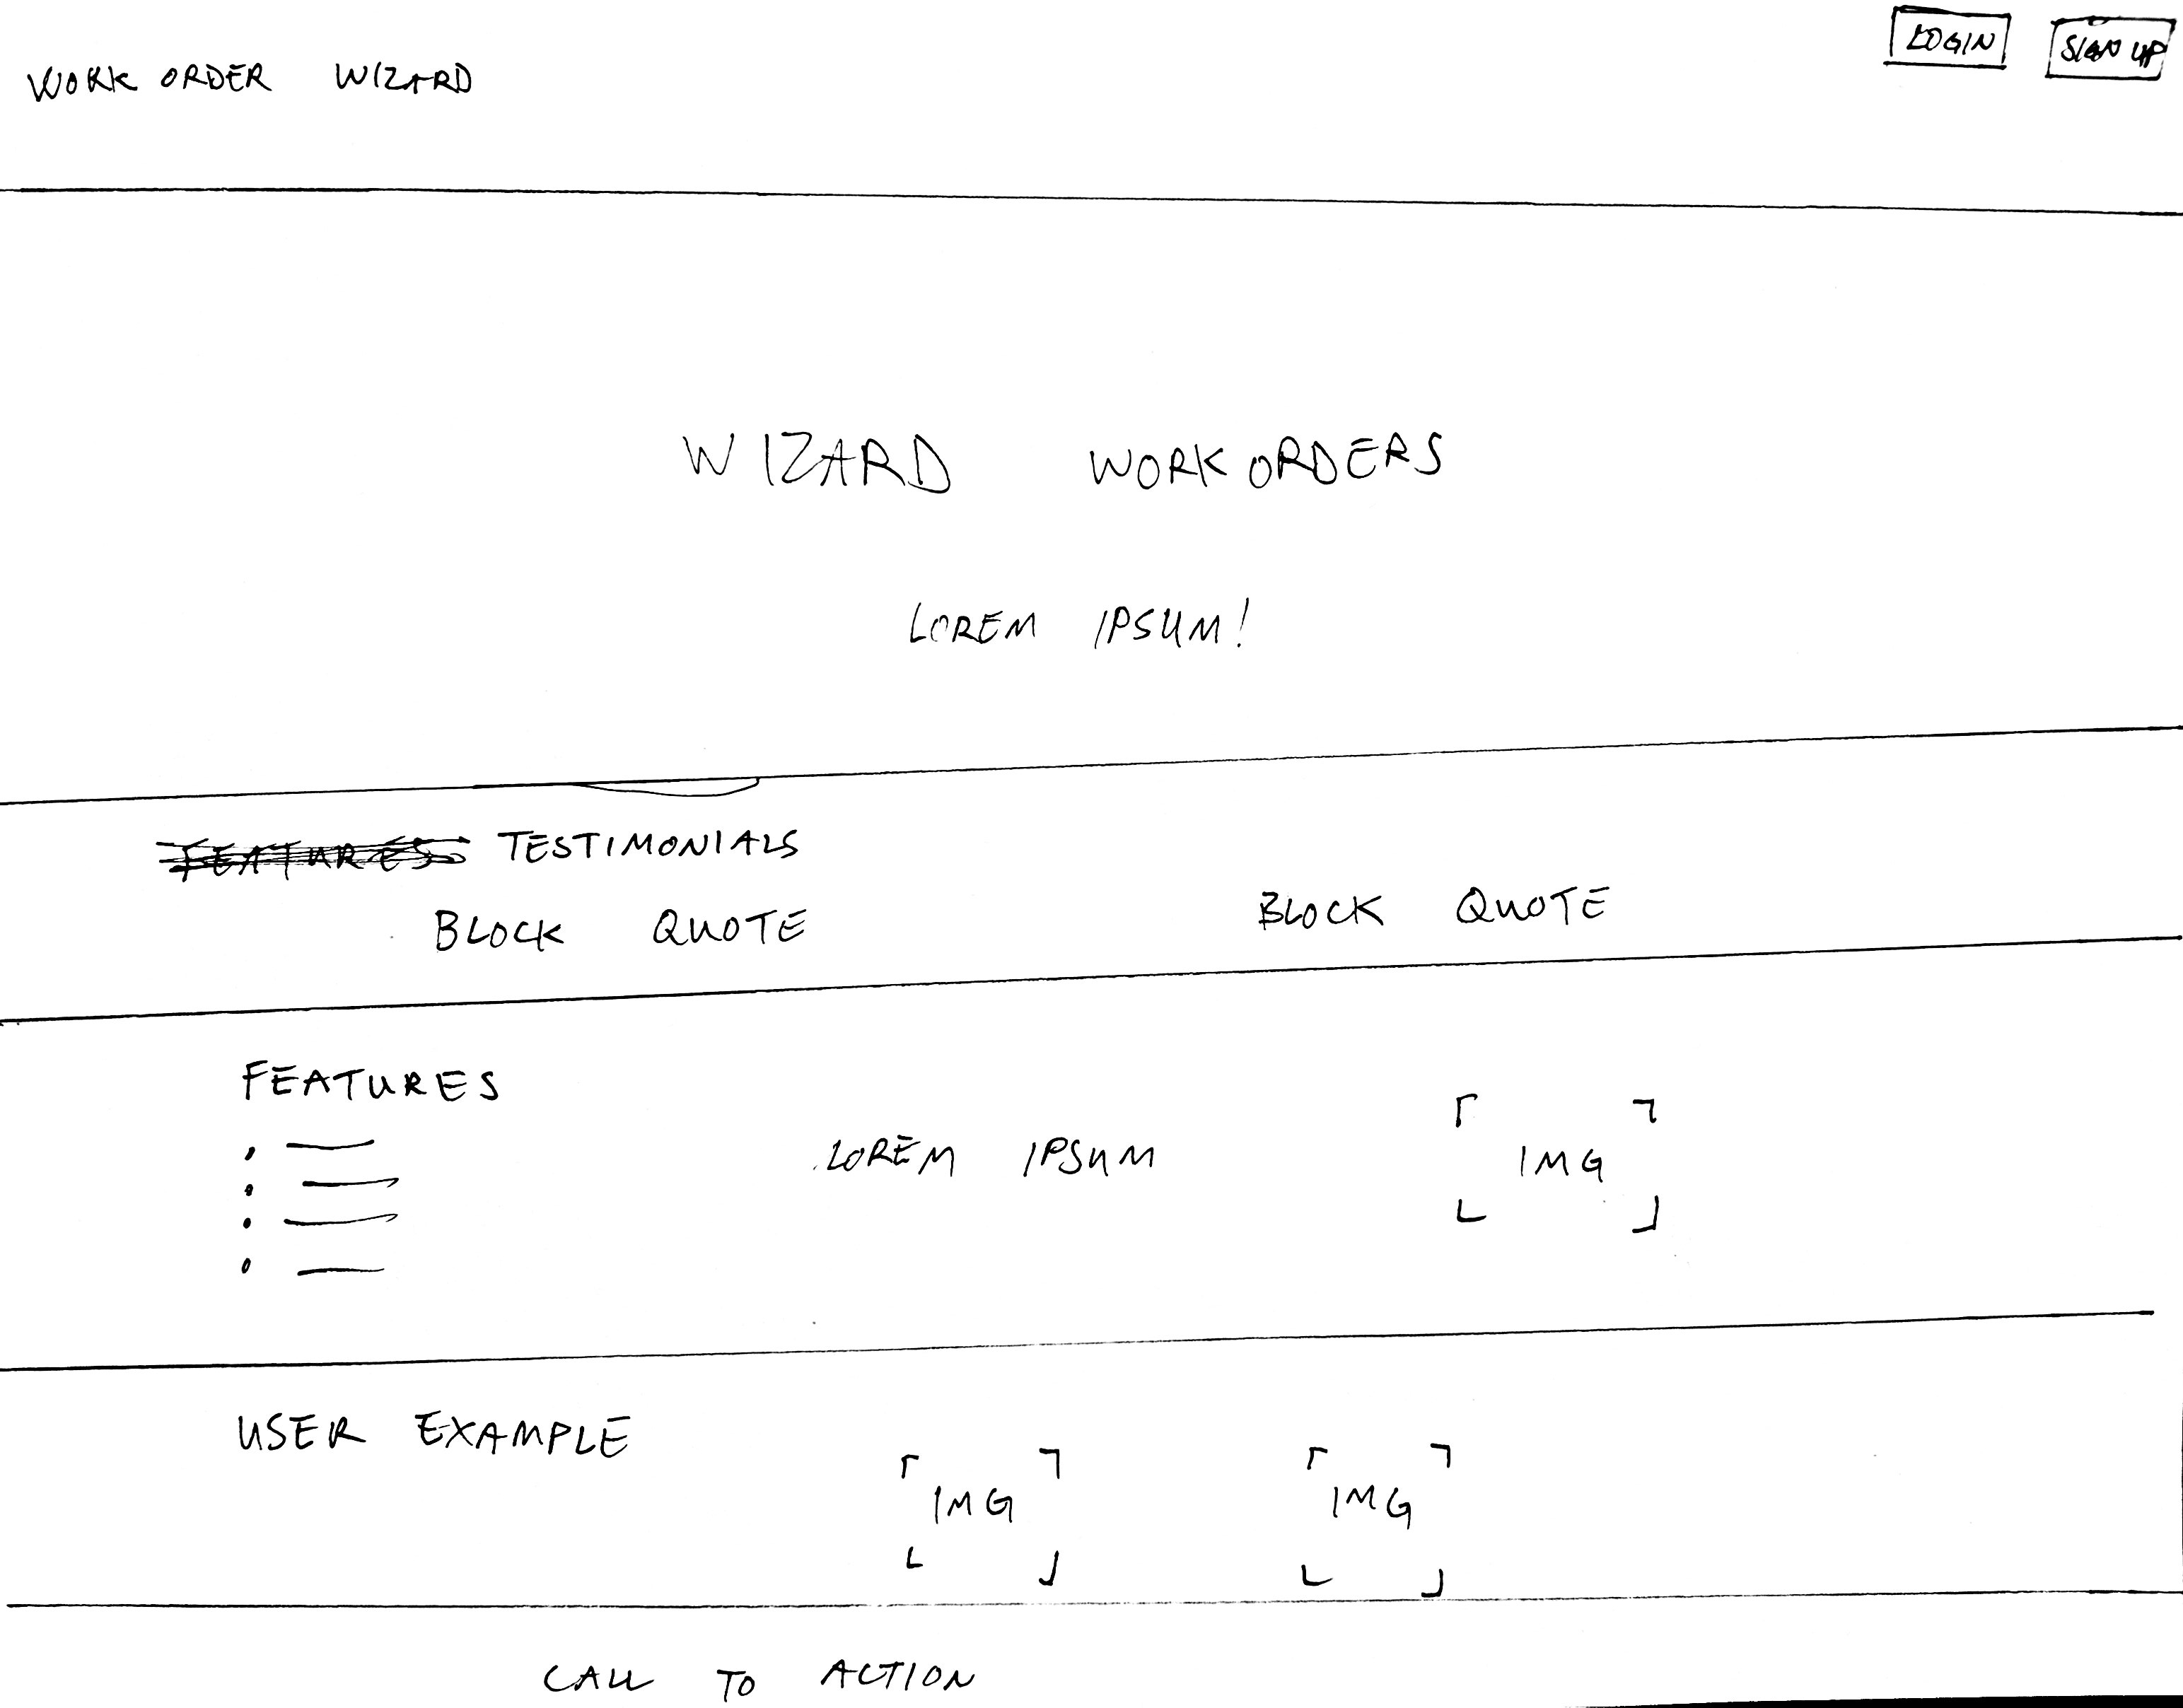 LOGIN SIGN UP
WORK ORDER WIZARD
WIZARD WORK ORDERS
LOREM IPSUM!
FEATURES TESTIMONIALS
BLOCK QUOTE BLOCK QUOTE
FEATURES
LOREM IPSUM IMG
USER EXAMPLE
IMG IMG
CALL TO ACTION